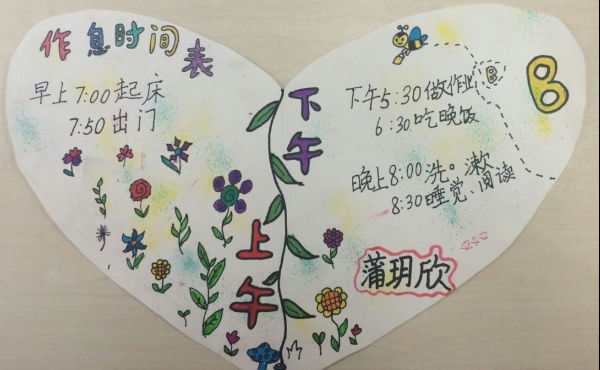 作息时间表
早上7:00起床
7:50出门
上午
下午
下午5:30做作业
6:30吃晚饭
晚上8:00洗。漱
8:30睡觉、阅读
蒲玥欣
B
B